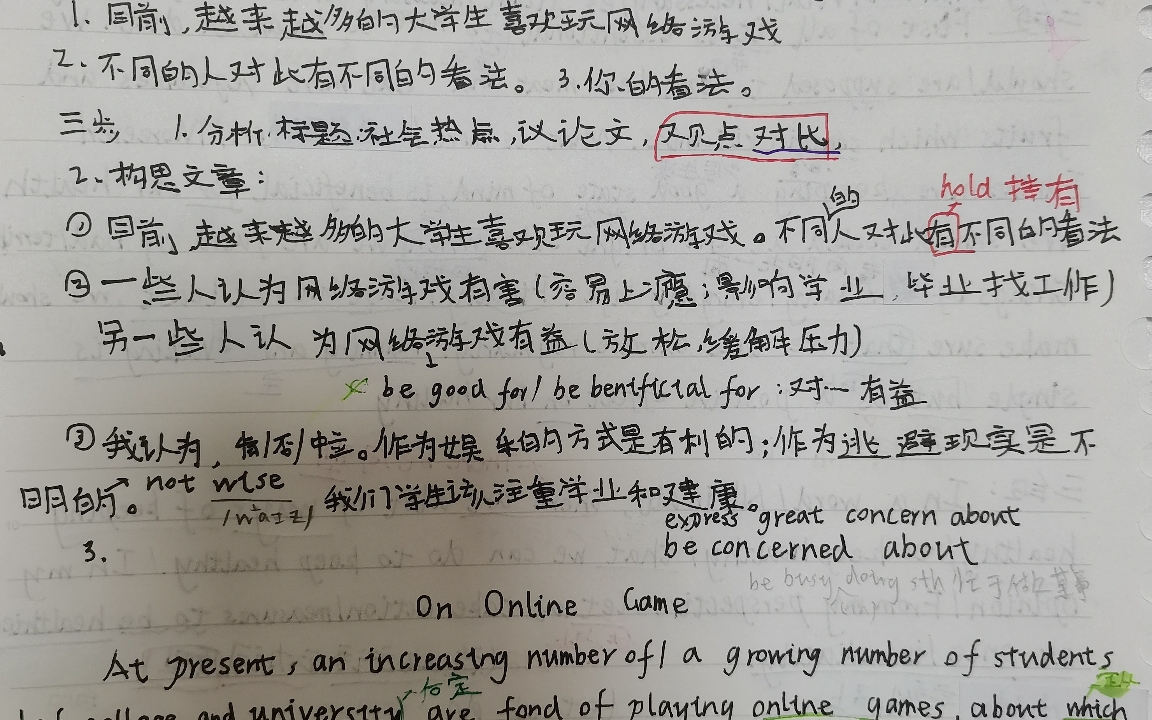 1. 目前,越来越多的大学生喜欢玩网络游戏
2. 不同的人对此有不同的看法。 3.你的看法。
三步 1.分析标题:社会热点,议论文,观点对比,
2、构思文章:
的 hold 持有
① 目前,越来越多的大学生喜欢玩网络游戏。不同人对此有不同的看法
② 一些人认为网络游戏有害(容易上瘾;影响学业,毕业找工作)
另一些人认为网络游戏有益(放松,缓解压力)
be good for/ be benificial for :对…有益
③ 我认为, /否/中立。作为娱乐的方式是有利的;作为逃避现实是不
明的。 not wise 我们学生该注重学业和健康。
/waɪz/ express great concern about
3. be concerned about
be busy doing sth 忙于做某事
On Online Game
At present, an increasing number of/ a growing number of students
肯定
college and university are fond of playing online games, about which